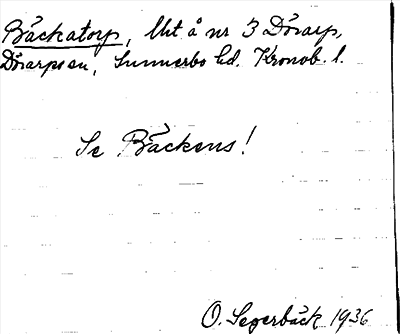 Bäckatorp, Utt å nr 3 Dörarp,
Dörarps sn, Sunnerbo hd. Kronob. l.
Se Bäckens!
O. Segerbäck 1936